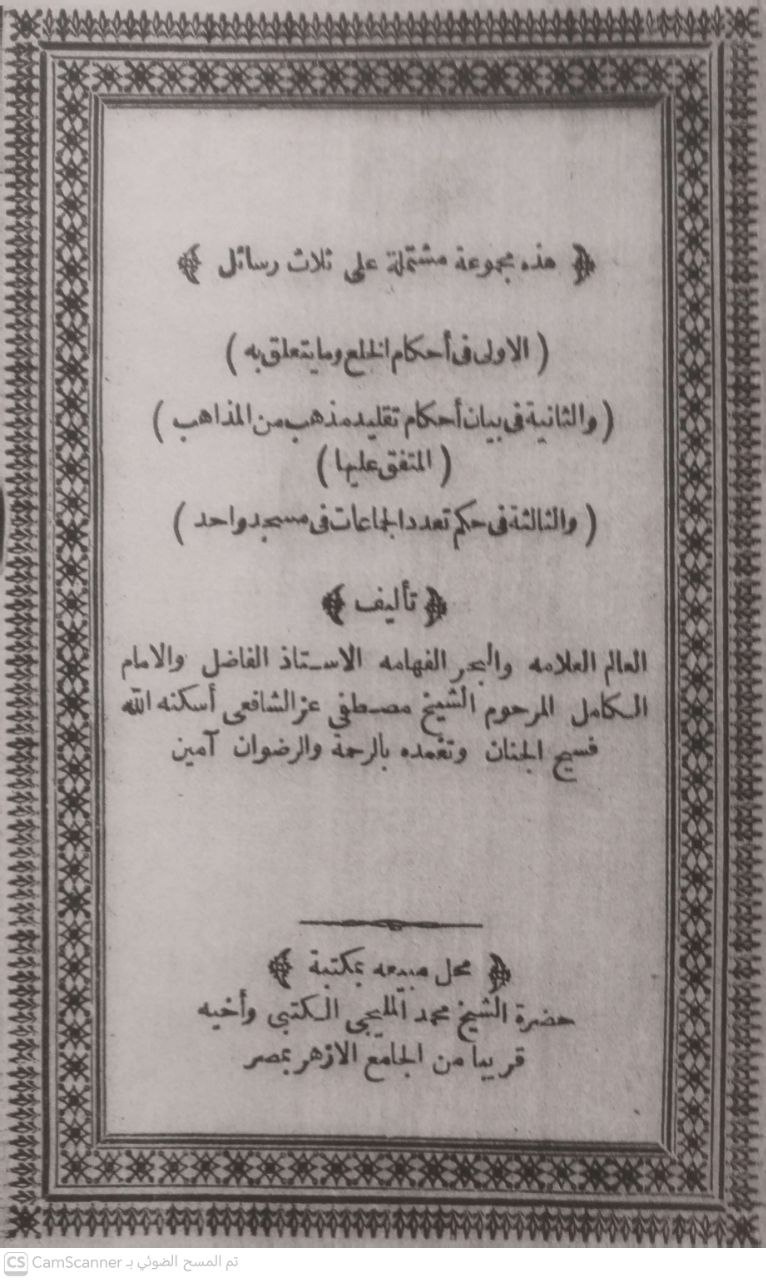 ﴿ هذه مجموعة مشتملة على ثلاث رسائل ﴾
( الاولى فى أحكام الخلع وما يتعلق به )
( والثانية فى بيان أحكام تقليد مذهب من المذاهب )
( المتفق عليها )
( والثالثة فى حكم تعدد الجماعات فى مسجد واحد )
﴿ تأليف ﴾
العالم العلامه والبحر الفهامه الاستاذ الفاضل والامام
الكامل المرحوم الشيخ مصطفى عز الشافعى أسكنه الله
فسيح الجنان وتغمده بالرحمة والرضوان آمين
﴿ محل مبيعه بمكتبة ﴾
حضرة الشيخ محمد المليجى الكتبى وأخيه
قريبا من الجامع الازهر بمصر
CS CamScanner تم المسح الضوئي بـ